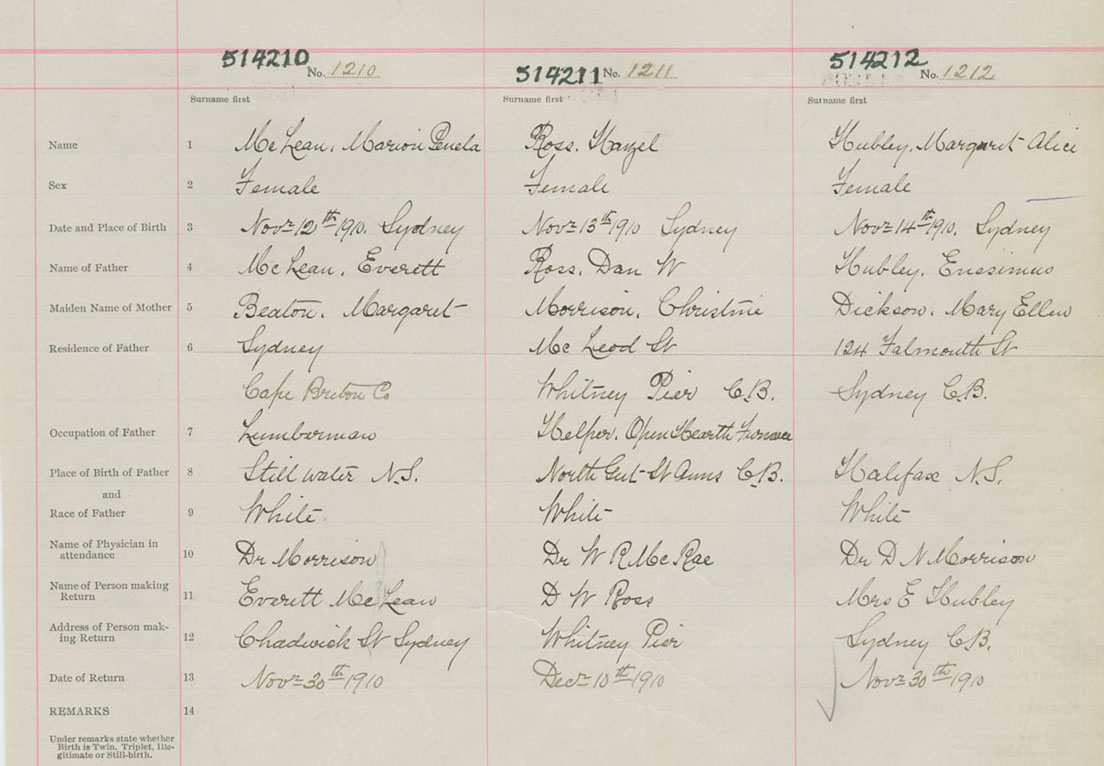 514210 No. 1210 514211 No. 1211 514212 No. 1212
Surname first Surname first Surname first
Name 1 McLean, Marion Penela Ross, Hazel Hubley, Margaret Alice
Sex 2 Female Female Female
Date and Place of Birth 3 Novr 12th 1910, Sydney Novr 13th 1910 Sydney Novr 14th 1910, Sydney
Name of Father 4 McLean, Everett Ross, Dan W Hubley, Enesimus
Maiden Name of Mother 5 Beaton, Margaret Morrison, Christine Dickson, Mary Ellen
Residence of Father 6 Sydney McLeod St 124 Falmouth St
Cape Breton Co Whitney Pier C.B. Sydney C.B.
Occupation of Father 7 Lumberman Helper, Open Hearth Furnace
Place of Birth of Father 8 Still water N.S. North Gut St Anns C.B. Halifax N.S.
and
Race of Father 9 White White White
Name of Physician in
attendance 10 Dr Morrison Dr W R McRae Dr D N Morrison
Name of Person making
Return 11 Everett McLean D W Ross Mrs E Hubley
Address of Person mak-
ing Return 12 Chadwick St Sydney Whitney Pier Sydney C.B.
Date of Return 13 Novr 30th 1910 Decr 10th 1910 Novr 30th 1910
REMARKS 14
Under remarks state whether
Birth is Twin, Triplet, Ille-
gitimate or Still-birth.